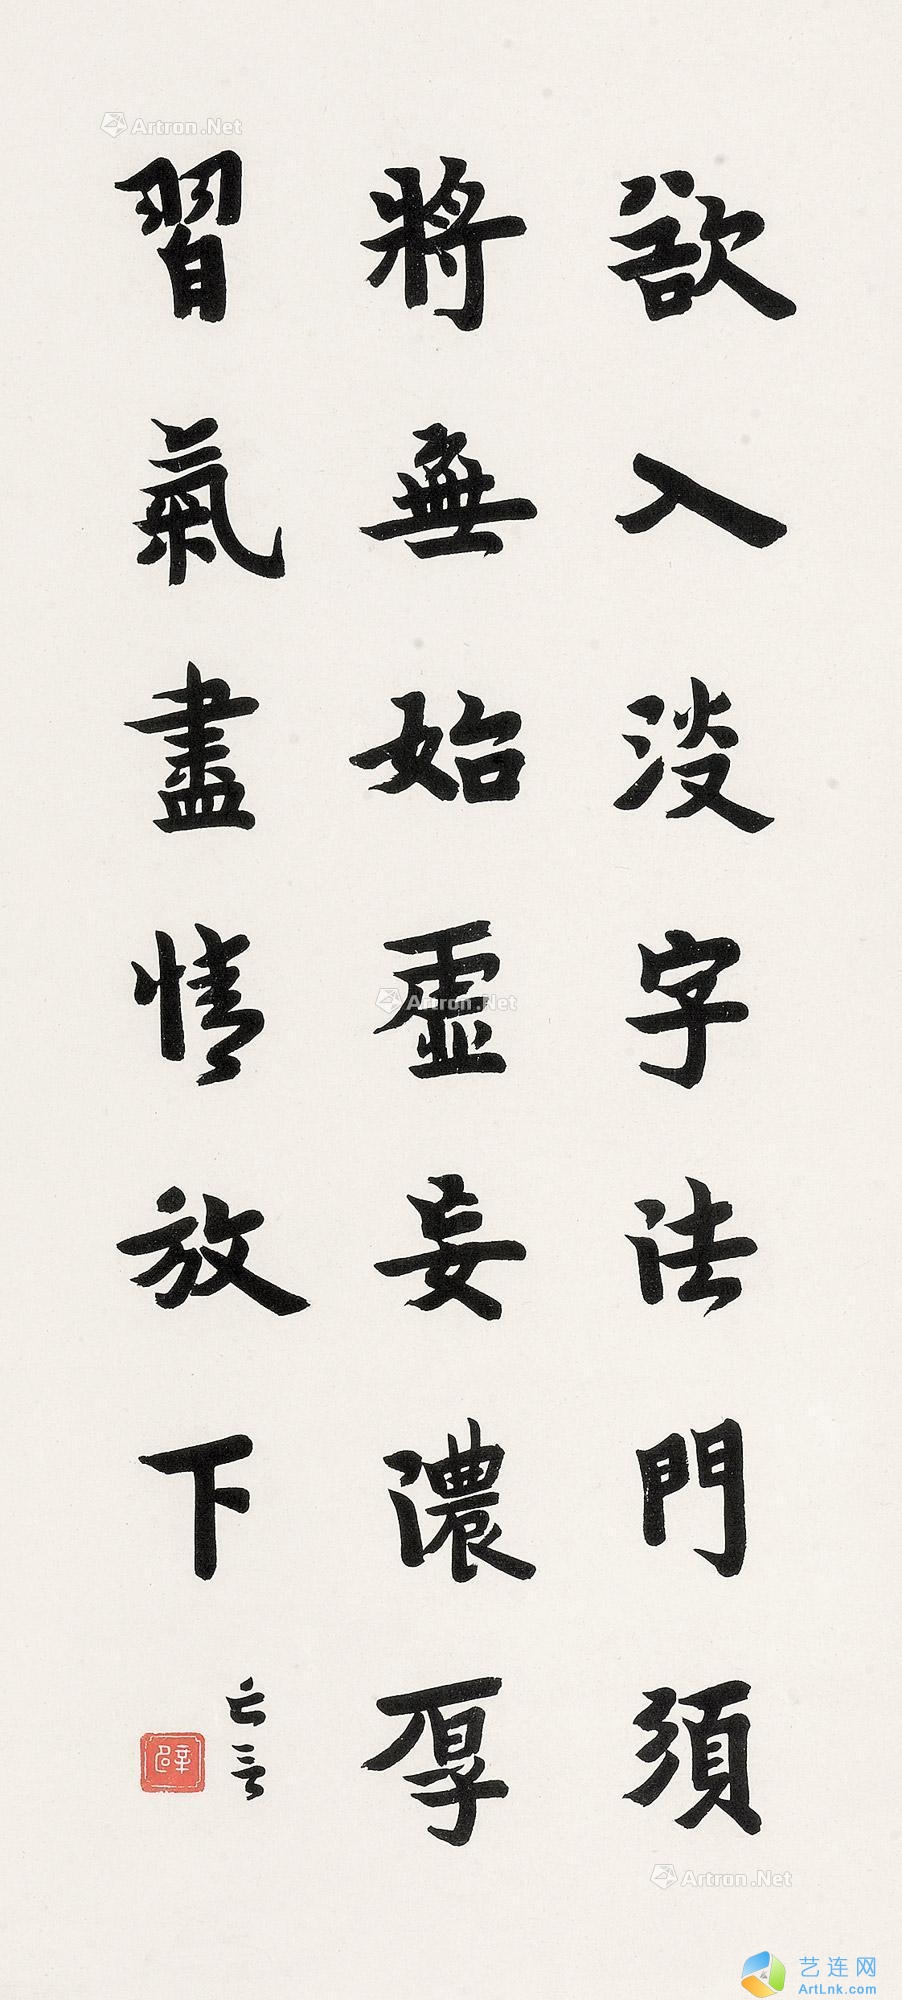 欲入淡字法門須
將無始虛妄濃厚
習氣盡情放下
亡言
Artron.Net
Artron.Net
Artron.Net
艺连网
ArtLnk.com